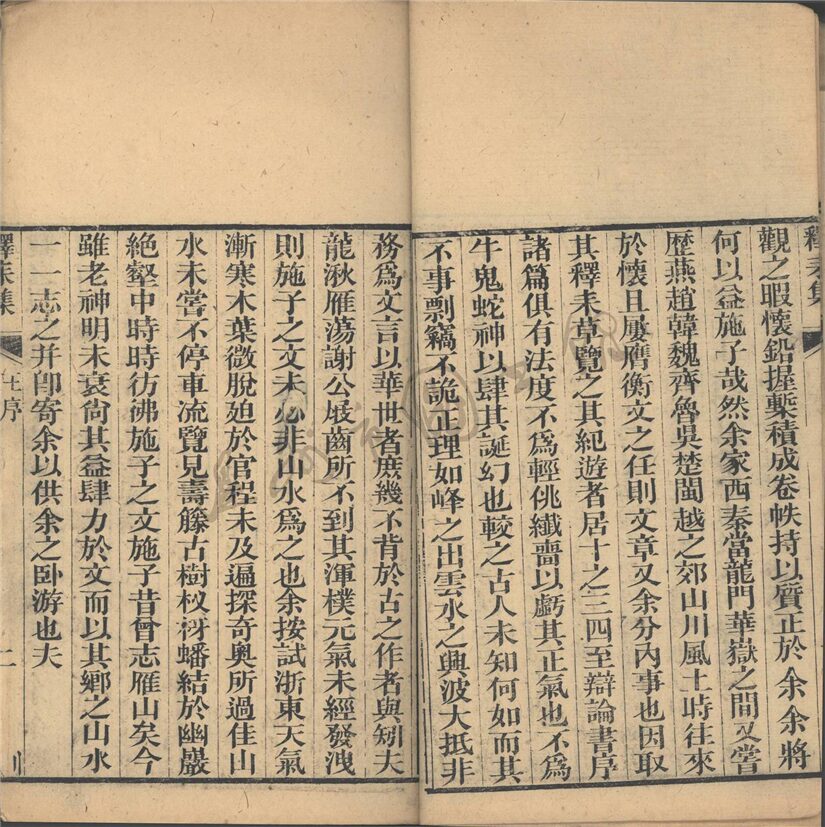 釋耒集
觀之暇懷鉛握槧積成卷帙持以質正於余余將
何以益施子哉然余家西秦當龍門華嶽之間又嘗
歷燕趙韓魏齊魯吳楚閩越之郊山川風土時往來
於懷且屢膺衡文之任則文章又余分內事也因取
其釋耒草覽之其紀遊者居十之三四至辯論書序
諸篇俱有法度不爲輕佻纖嗇以虧其正氣也不爲
牛鬼蛇神以肆其誕幻也較之古人未知何如而其
不事剽竊不詭正理如峰之出雲水之興波大抵非
務爲文言以華世者庶幾不背於古之作者與矧夫
龍湫雁蕩謝公屐齒所不到其渾樸元氣未經發洩
則施子之文未必非山水爲之也余按試浙東天氣
漸寒木葉微脫廹於官程未及遍探奇奧所過佳山
水未嘗不停車流覽見壽籐古樹杈枒蟠結於幽巖
絶壑中時時彷彿施子之文施子昔曾志雁山矣今
雖老神明未衰尙其益肆力於文而以其鄉之山水
一一志之并郎寄余以供余之臥游也夫
釋耒集
王序
二